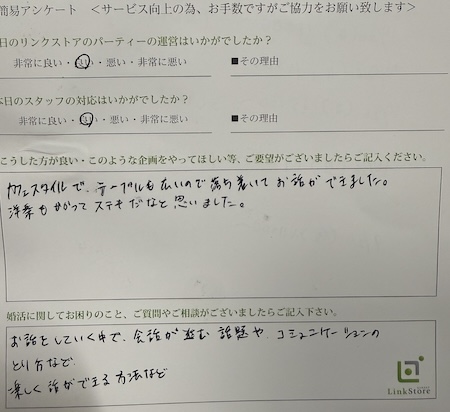 簡易アンケート　＜サービス向上の為、お手数ですがご協力をお願い致します＞
日のリンクストアのパーティーの運営はいかがでしたか？
非常に良い・良い・悪い・非常に悪い　■その理由
本日のスタッフの対応はいかがでしたか？
非常に良い・良い・悪い・非常に悪い　■その理由
こうした方が良い・このような企画をやってほしい等、ご要望がございましたらご記入ください。
カフェスタイルで、テーブルも広いので落ち着いてお話ができました。
洋楽もかかってステキだなと思いました。
婚活に関してお困りのこと、ご質問やご相談がございましたらご記入下さい。
お話をしていく中で、会話が進む話題や、コミュニケーションの
とり方など、
楽しく話ができる方法など
LinkStore